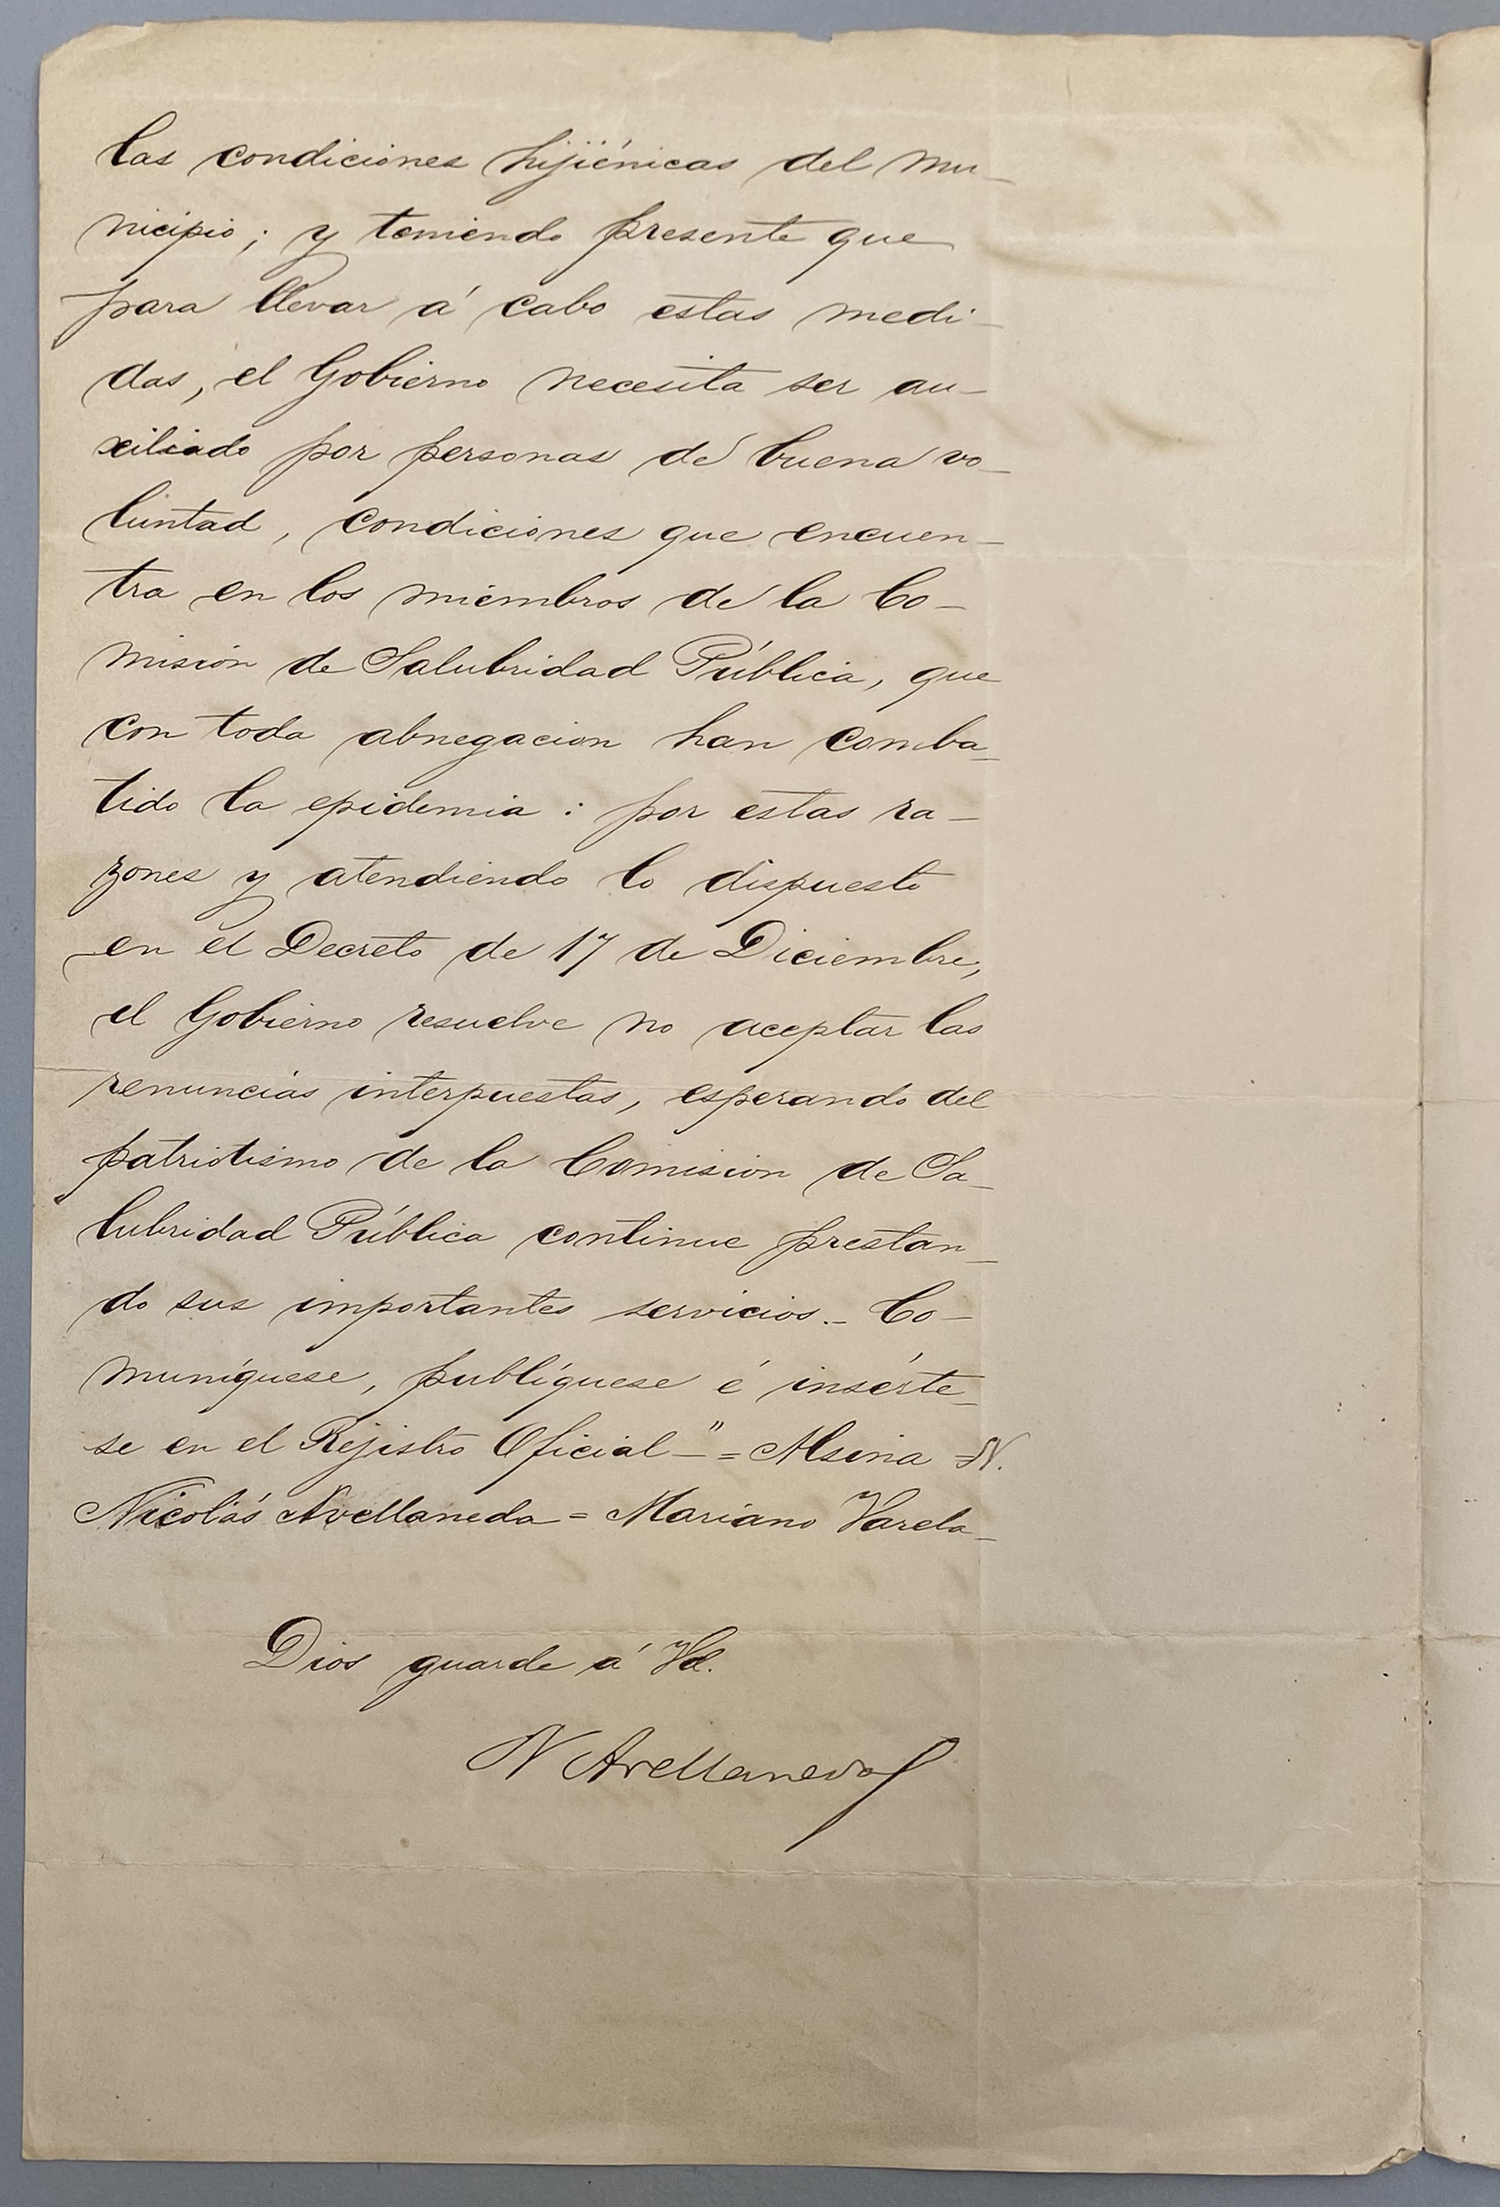 las condiciones hijiénicas del mu-
nicipio; y teniendo presente que
para llevar á cabo estas medi-
das, el Gobierno necesita ser au-
xiliado por personas de buena vo-
luntad, condiciones que encuen-
tra en los miembros de la Co-
mision de Salubridad Pública, que
con toda abnegacion han comba-
tido la epidemia: por estas ra-
zones y atendiendo lo dispuesto
en el Decreto de 17 de Diciembre,
el Gobierno resuelve no aceptar las
renuncias interpuestas, esperando del
patriotismo de la Comision de Sa-
lubridad Pública continue prestan-
do sus importantes servicios.- Co-
muníquese, publíquese é insérte-
se en el Rejistro Oficial-"= Alsina = N.
Nicolás Avellaneda = Mariano Varela-
Dios guarde á Vd.
N Avellaneda